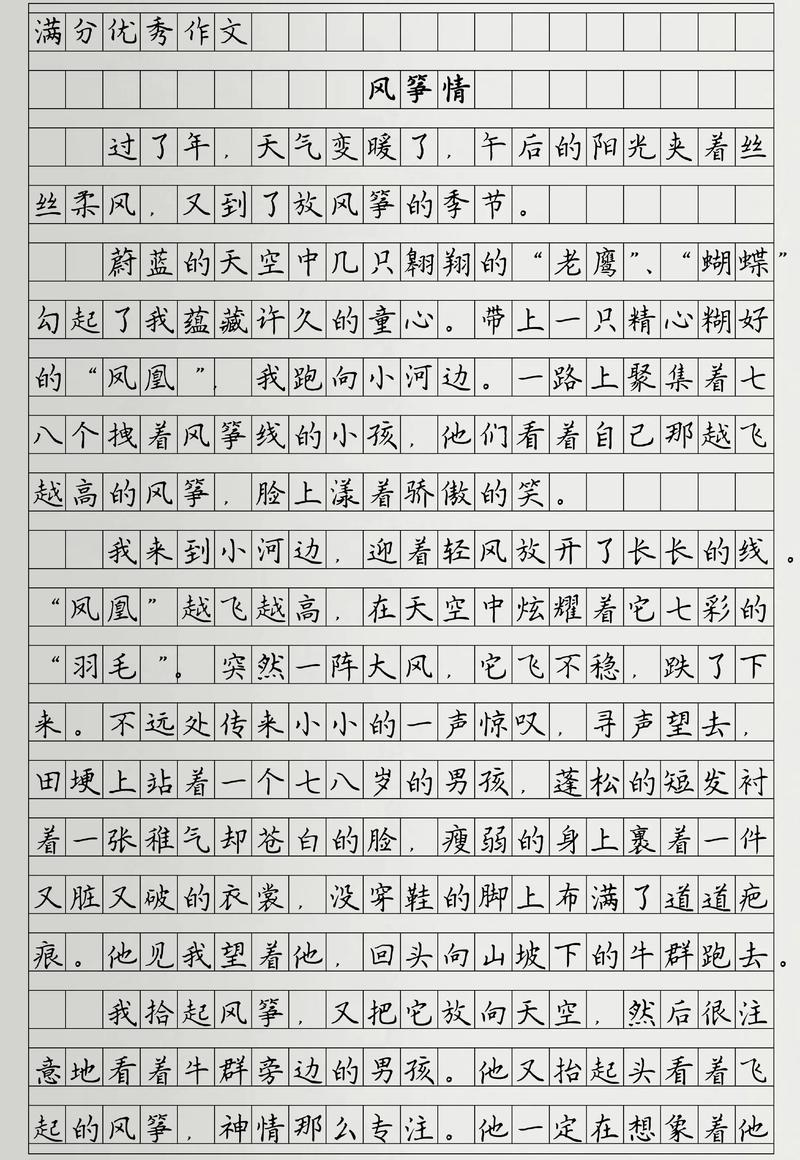 满分优秀作文
风筝情
过了年，天气变暖了，午后的阳光夹着丝
丝柔风，又到了放风筝的季节。
蔚蓝的天空中几只翱翔的“老鹰”、“蝴蝶”
勾起了我蕴藏许久的童心。带上一只精心糊好
的“凤凰”，我跑向小河边。一路上聚集着七
八个拽着风筝线的小孩，他们看着自己那越飞
越高的风筝，脸上漾着骄傲的笑。
我来到小河边，迎着轻风放开了长长的线。
“凤凰”越飞越高，在天空中炫耀着它七彩的
“羽毛”。突然一阵大风，它飞不稳，跌了下
来。不远处传来小小的一声惊叹，寻声望去，
田埂上站着一个七八岁的男孩，蓬松的短发衬
着一张稚气却苍白的脸，瘦弱的身上裹着一件
又脏又破的衣裳，没穿鞋的脚上布满了道道疤
痕。他见我望着他，回头向山坡下的牛群跑去。
我拾起风筝，又把它放向天空，然后很注
意地看着牛群旁边的男孩。他又抬起头看着飞
起的风筝，神情那么专注。他一定在想象着他